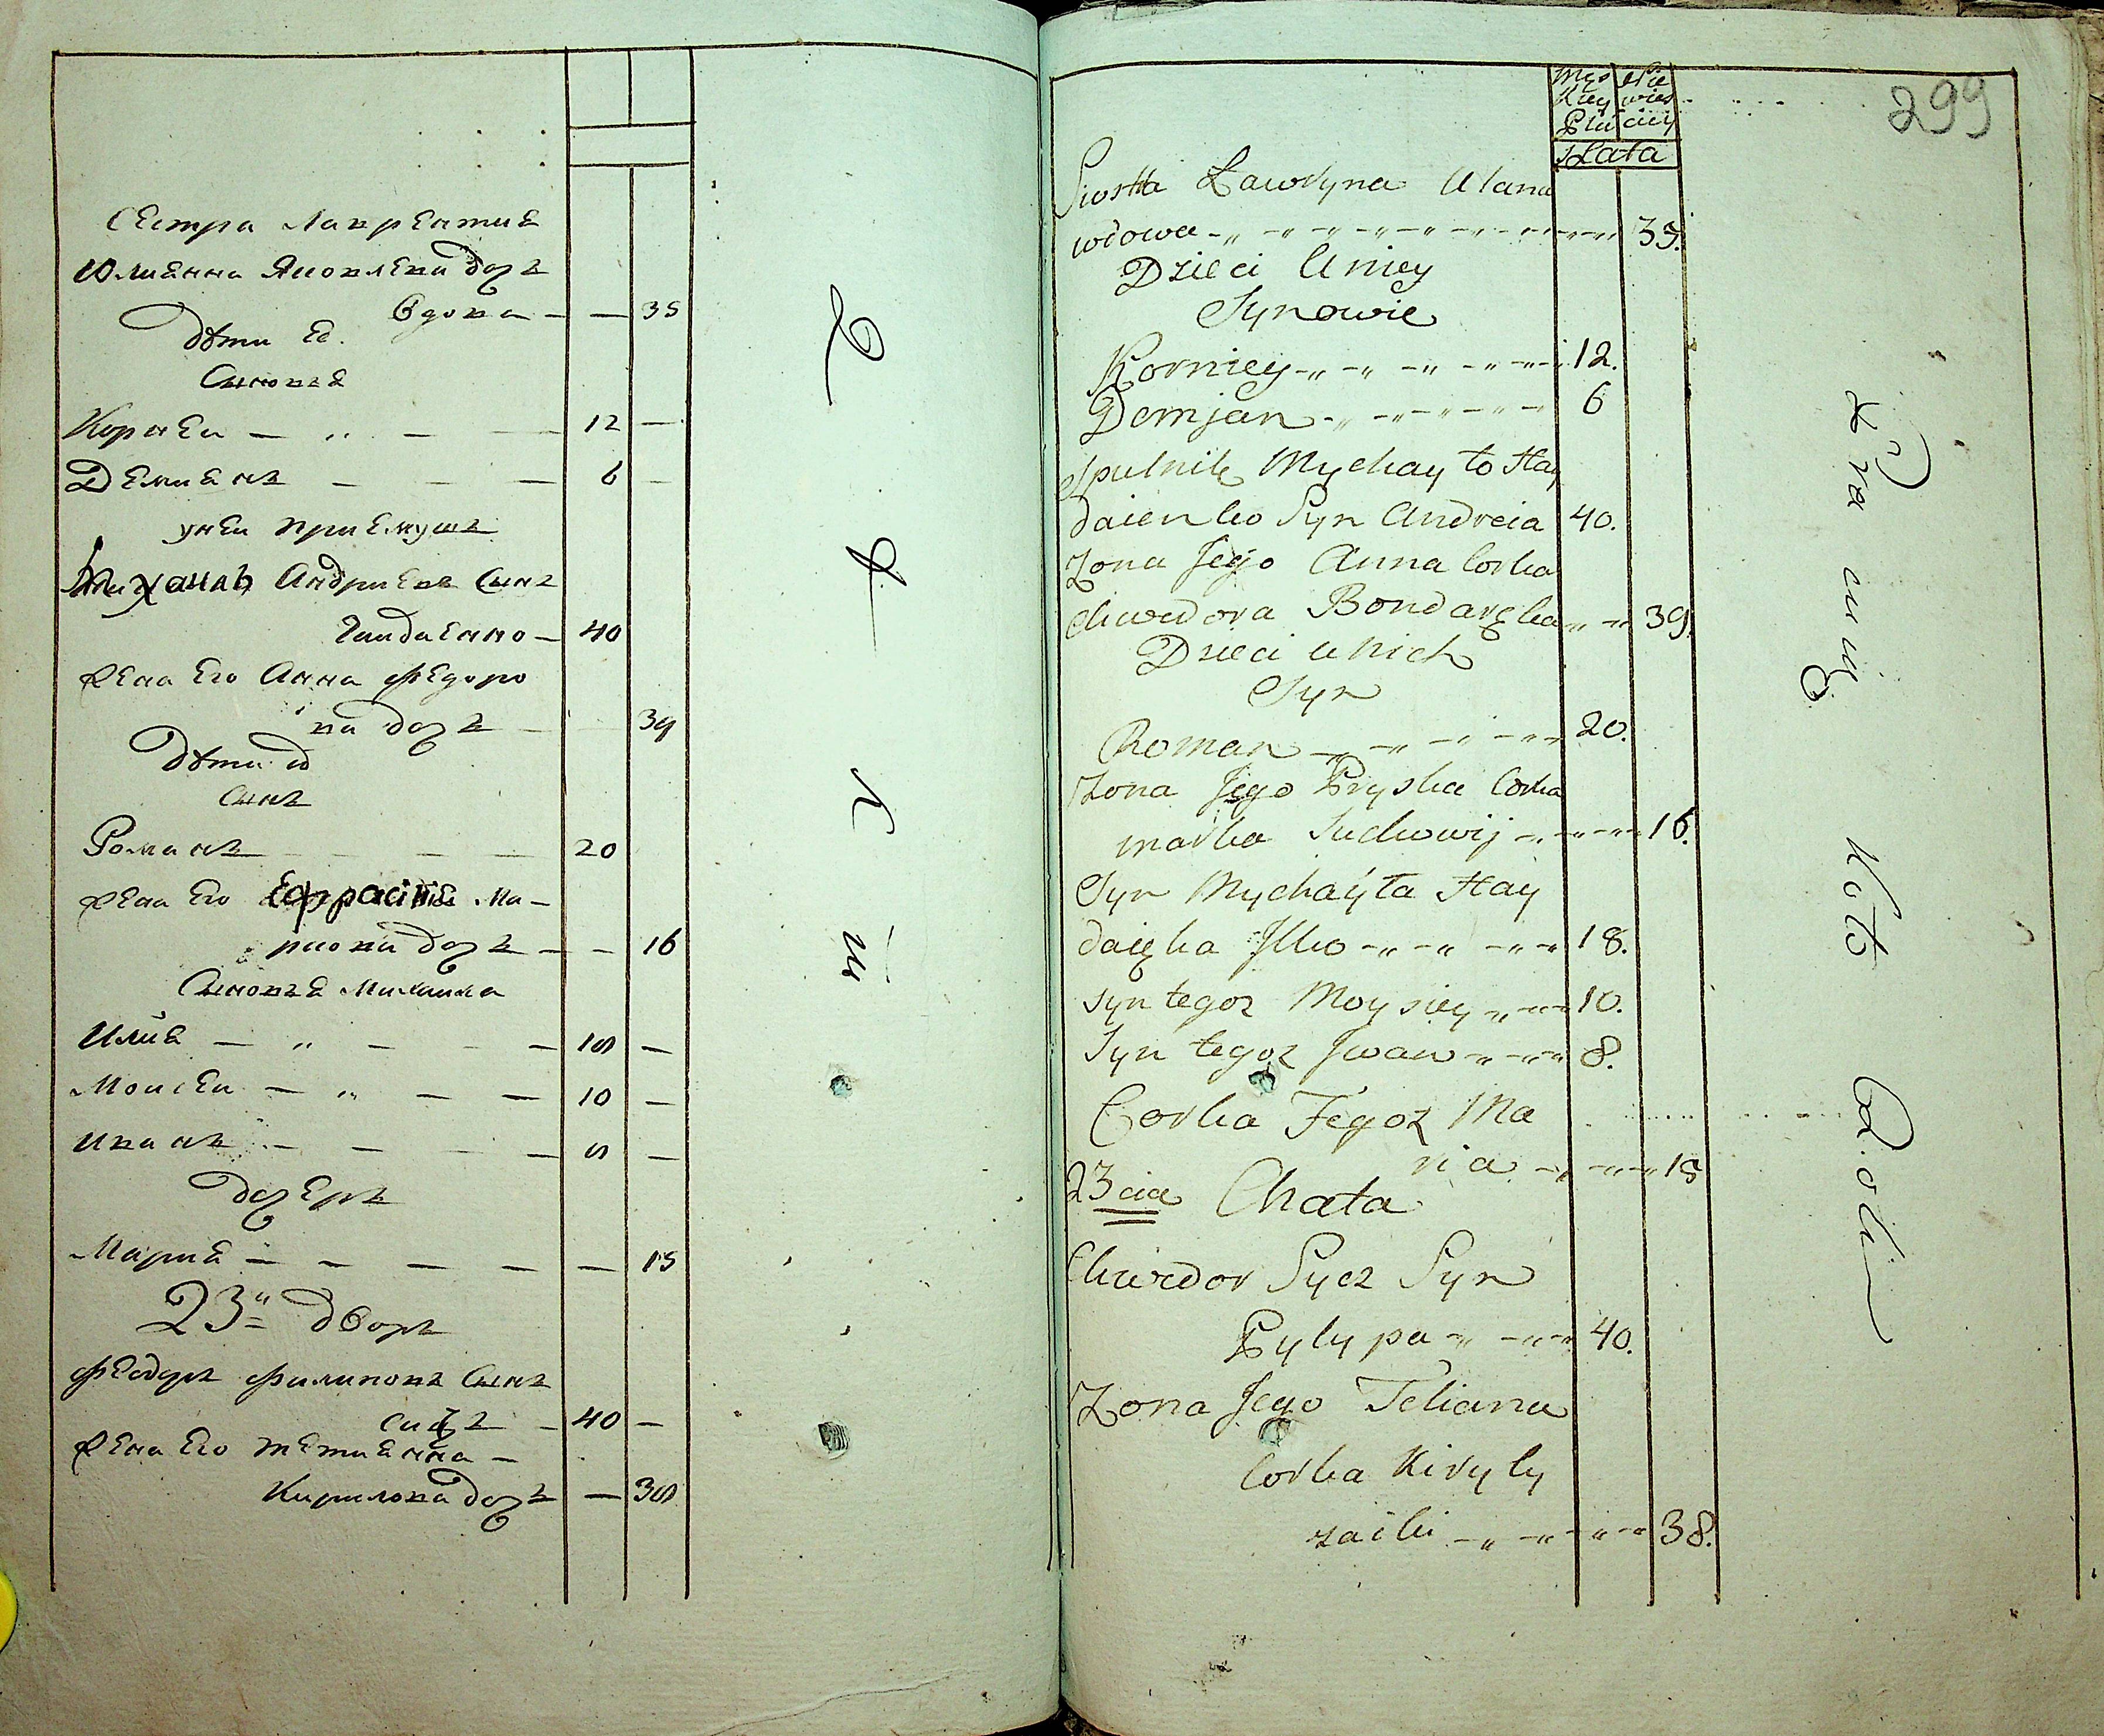 Сестра Лаврентия
Юлианна Яковлева дочь
Вдова — — 35
Дѣти Ее.
Сыновья
Корней — „ — — 12 —
Демианъ — — — 6 —
у ней приемышъ
Михаилъ Андриевъ Сынъ
Гайдаенко — 40
Жена Его Анна Федоро
ва дочь — 39
Дѣти их
Сынъ
Романъ — — — 20
Жена Его Ефросиния Ма-
ркова дочь — — 16
Сыновья Михаила
Илия — „ — — — 18 —
Моисей — „ — — 10 —
Иванъ — — — 8 —
дочерь
Мария — — — — — 15
23й дворъ
Федоръ Филиповъ Сынъ
Сичъ — 40 —
Жена Его Татианна —
Кирилова дочь — 38
299
Męs Nie
kiey wies
Płci ciey
Lata
Siostra Ławryna Ulana
wdowa 35.
Dzieci Uniey
Synowie
Korniey 12.
Demjan 6
Spulnik Mychayło Hay
daienko Syn Andreia 40.
Zona Jego Anna Corka
Chwedora Bondarza 39.
Dzieci u Nich
Syn
Roman 20.
Zona Jego Pryska Corka
Marka 16.
Syn Mychayła Hay
daięka Ilko 18.
Syn tegoz Moysiey 10.
Syn tegoz Iwan 8.
Corka Tegoz Ma
ria 15
23cia Chata
Chwedor Sycz Syn
Pylypa 40.
Zona Jego Teliana
Corka Kiryły
38.
Koło